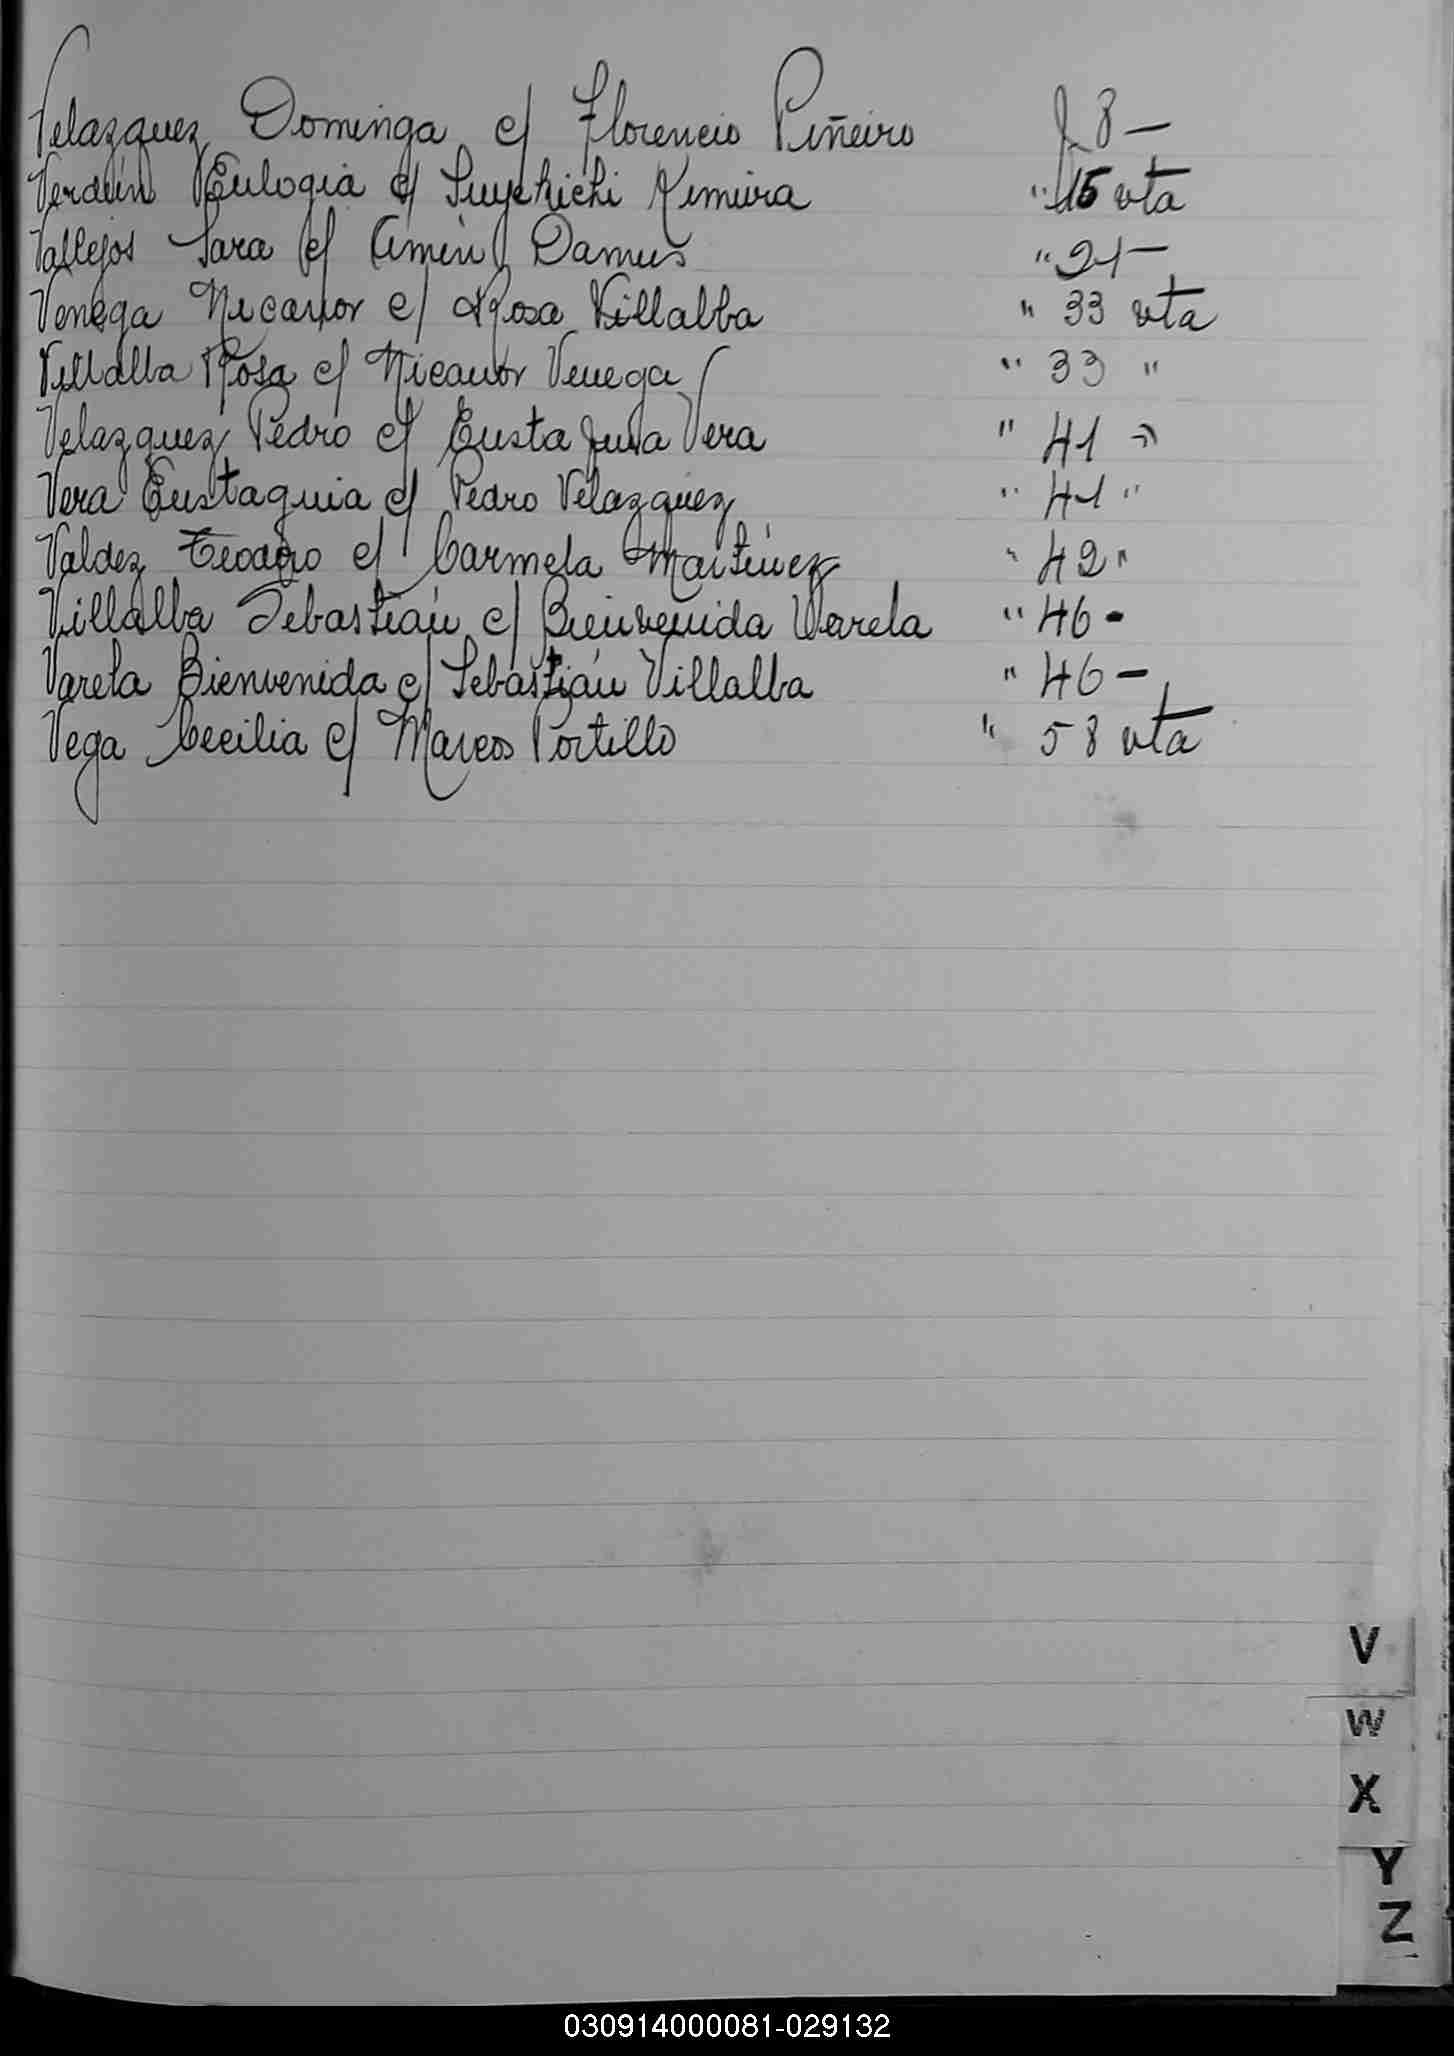 Velazquez Dominga c/ Florencio Piñeiro f 8 —
Verdún Eulogia c/ Suyehichi Kimura " 15 vta
Vallejos Sara c/ Amin Damus " 21 —
Venega Nicanor c/ Rosa Villalba " 33 vta
Villalba Rosa c/ Nicanor Venega " 33 "
Velazquez Pedro c/ Eustaquia Vera " 41 "
Vera Eustaquia c/ Pedro Velazquez " 41 "
Valdez Teodoro c/ Carmela Martinez " 42 "
Villalba Sebastián c/ Bienvenida Varela " 46 -
Varela Bienvenida c/ Sebastián Villalba " 46 —
Vega Cecilia c/ Marcos Portillo " 58 vta
V
W
X
Y
Z
030914000081-029132